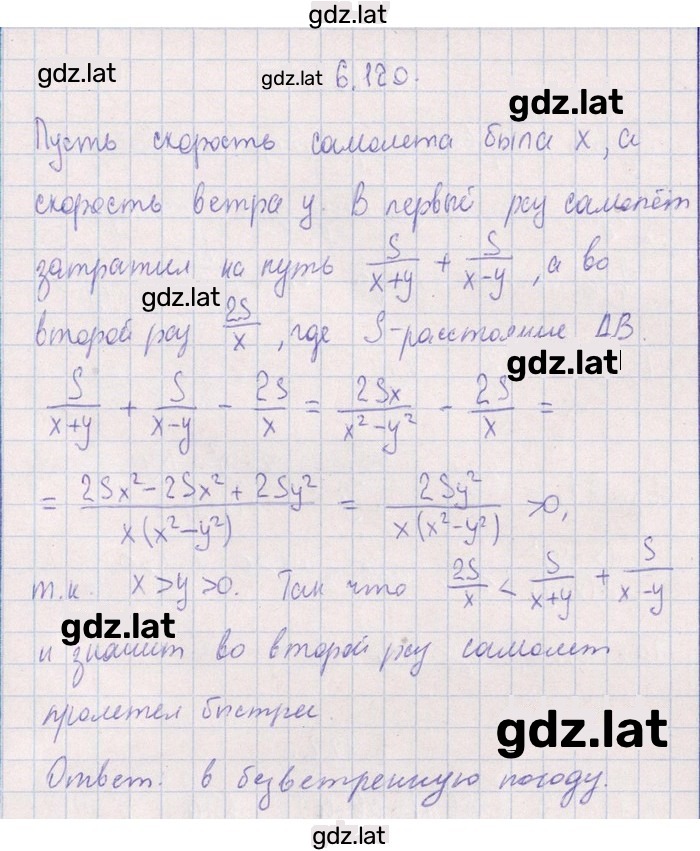 gdz.lat
gdz.lat
gdz.lat 6.120.
gdz.lat
Пусть скорость самолета была x, а
скорость ветра y. В первый рху самолёт
затратил на путь S/(x+y) + S/(x-y), а во
gdz.lat
второй рху 2S/x, где S-расстояние AB.
gdz.lat
S/(x+y) + S/(x-y) - 2S/x = 2Sx/(x²-y²) - 2S/x =
= (2Sx²-2Sx²+2Sy²)/(x(x²-y²)) = 2Sy²/(x(x²-y²)) >0,
т.к. x>y>0. Так что 2S/x < S/(x+y) + S/(x-y)
gdz.lat
и значит во второй рху самолет
пролетел быстрее
gdz.lat
Ответ: в безветренную погоду.
gdz.lat